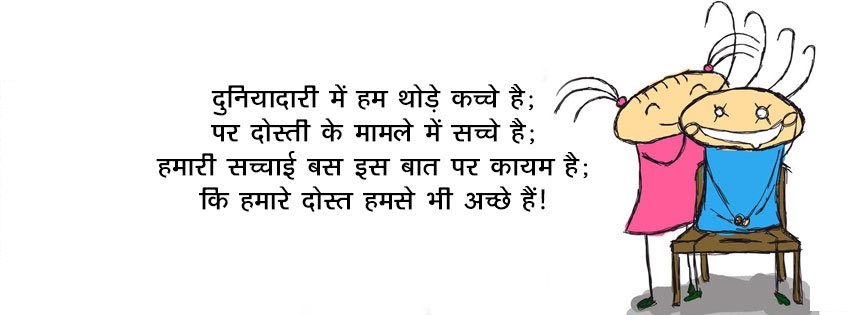 दुनियादारी में हम थोड़े कच्चे है;
पर दोस्ती के मामले में सच्चे है;
हमारी सच्चाई बस इस बात पर कायम है;
कि हमारे दोस्त हमसे भी अच्छे हैं!